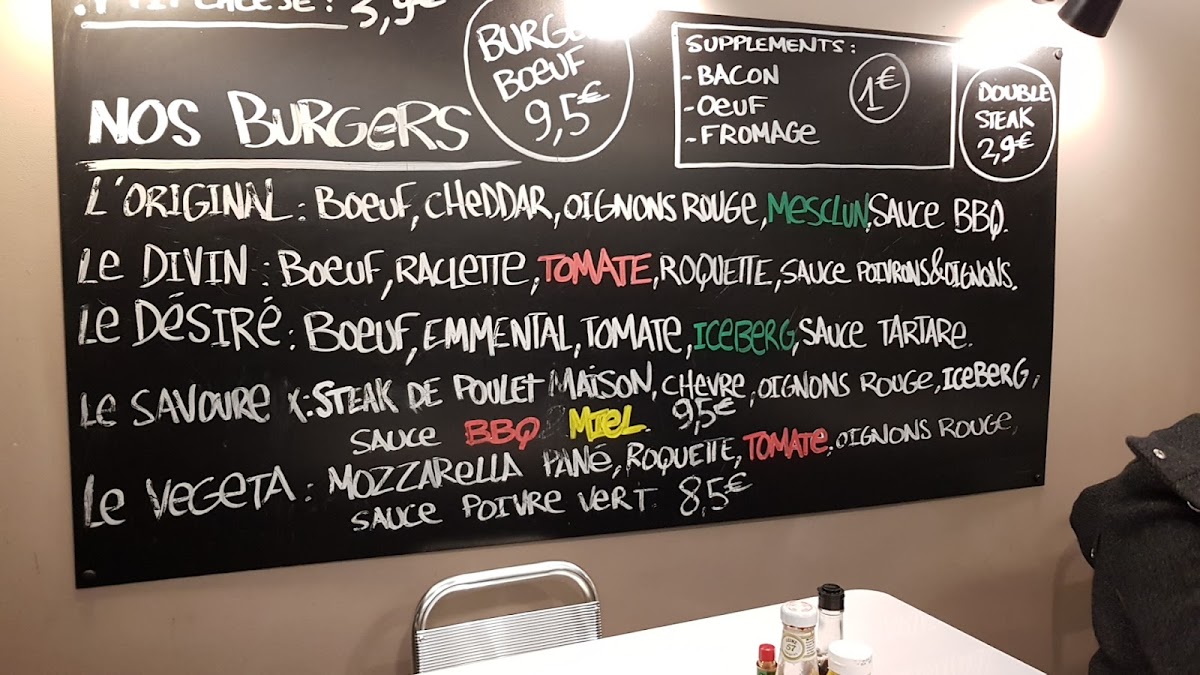 CHEESE : 3,9€
NOS BURGERS
BURGER
BOEUF
9,5€
SUPPLEMENTS :
- BACON
- OEUF
- FROMAGE
1€
DOUBLE
STEAK
2,9€
L'ORIGINAL : BOEUF, CHEDDAR, OIGNONS ROUGE, MESCLUN, SAUCE BBQ.
LE DIVIN : BOEUF, RACLETTE, TOMATE, ROQUETTE, SAUCE POIVRONS & OIGNONS.
LE DÉSIRÉ : BOEUF, EMMENTAL, TOMATE, ICEBERG, SAUCE TARTARE.
LE SAVOUREX : STEAK DE POULET MAISON, CHEVRE, OIGNONS ROUGE, ICEBERG,
SAUCE BBQ MIEL. 9,5€
LE VEGETA : MOZZARELLA PANÉ, ROQUETTE, TOMATE, OIGNONS ROUGE,
SAUCE POIVRE VERT. 8,5€
57